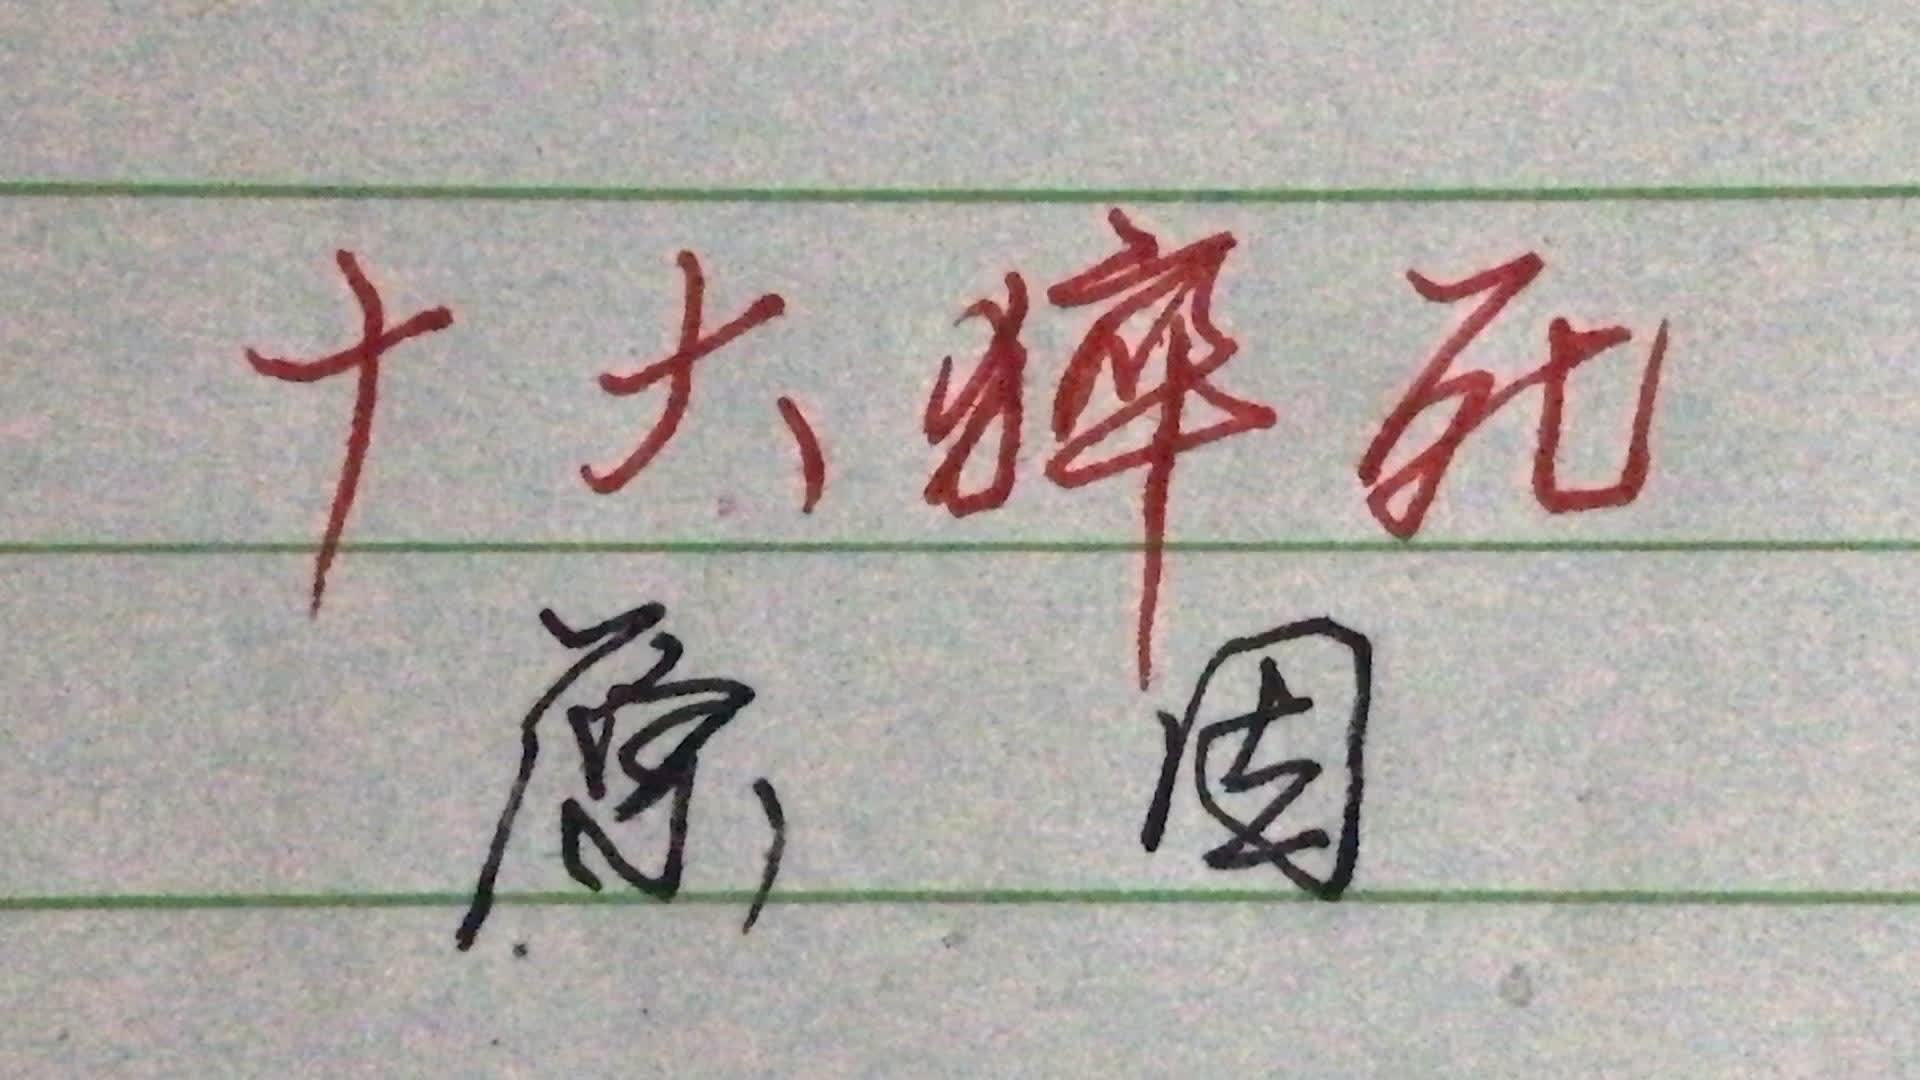 十大猝死
原因